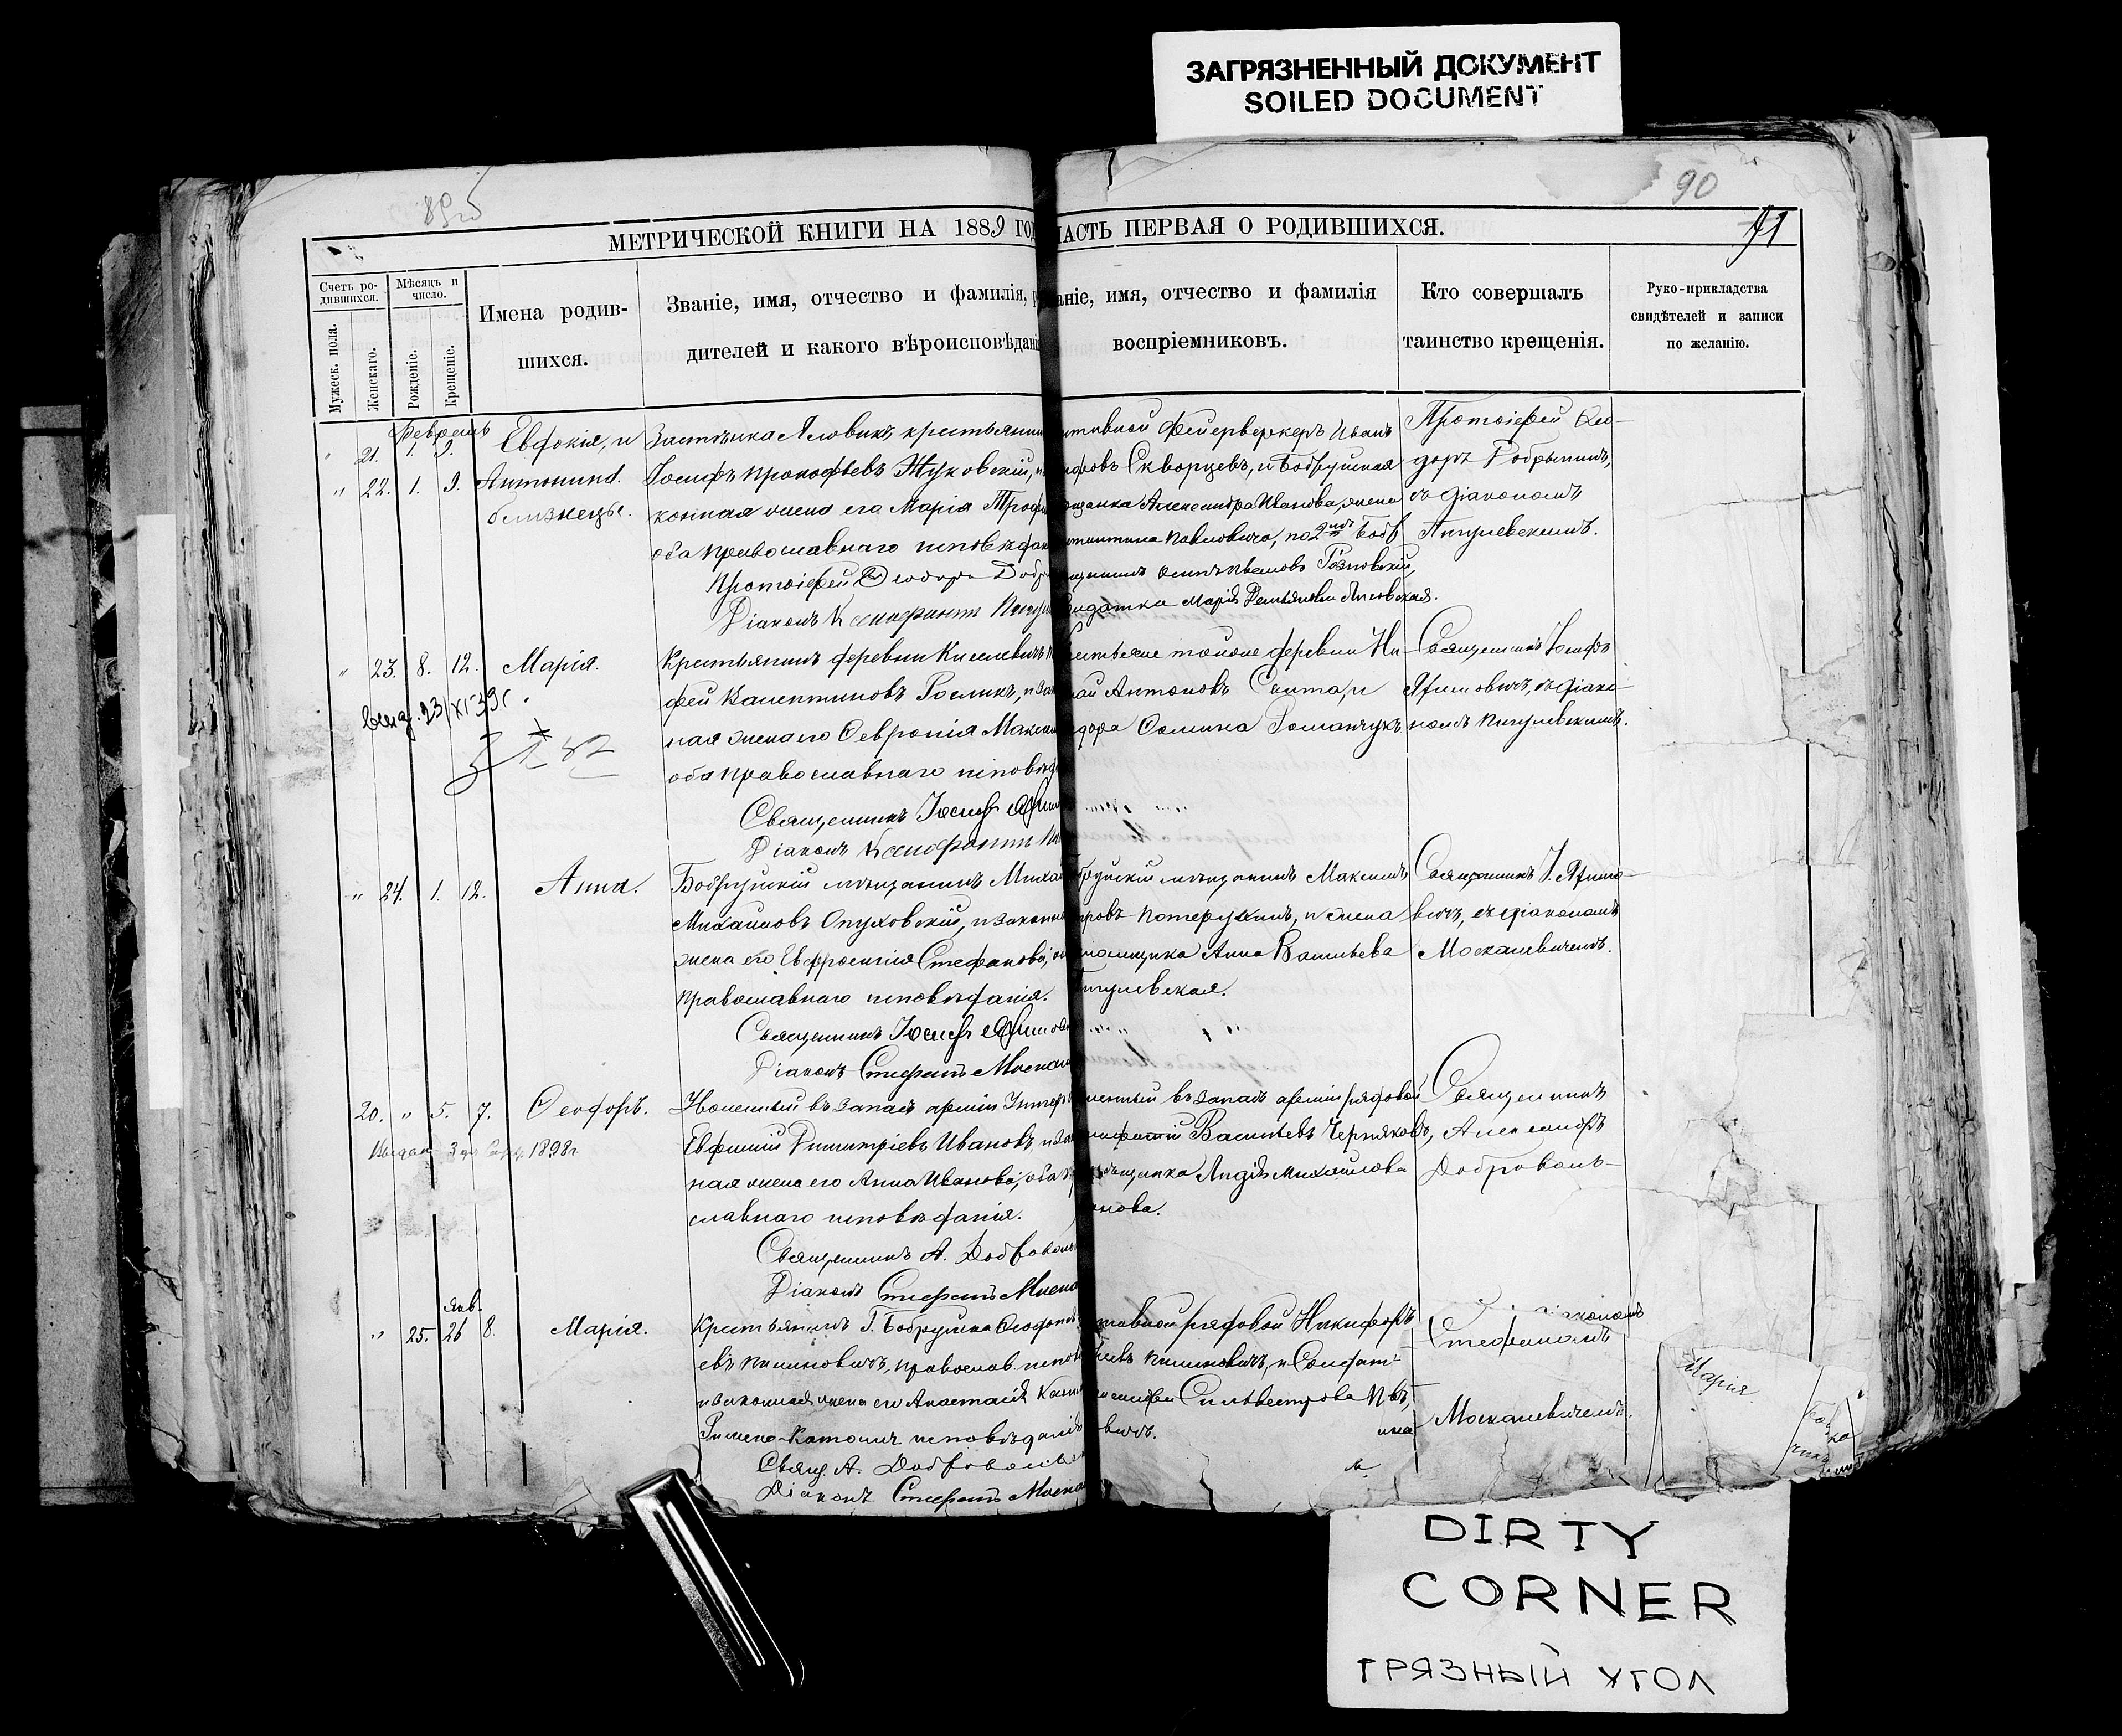 ЗАГРЯЗНЕННЫЙ ДОКУМЕНТ
SOILED DOCUMENT
90
91
МЕТРИЧЕСКОЙ КНИГИ НА 1889 ГОД
ЧАСТЬ ПЕРВАЯ О РОДИВШИХСЯ.
Счетъ ро-
дившихся.
Мужеск. пола.
Женскаго.
Мѣсяцъ и
число.
Рожденіе.
Крещеніе.
Имена родив-
шихся.
Званіе, имя, отчество и фамилія, р
дителей и какого вѣроисповѣдані
аніе, имя, отчество и фамилія
воспріемниковъ.
Кто совершалъ
таинство крещенія.
Руко-прикладства
свидѣтелей и записи
по желанію.
Февраль
" 21. 1. 9. Евфокія, и
" 22. 1. 9. Антонина.
близнецы.
Застѣнка Яловики крестьянин
Іосифъ Прокофьевъ Жуковскій, и
конная жена его Марія Троф
оба православнаго исповѣдан
Протоіерей Ѳеодоръ Добр
Діаконъ Ксенофонтъ Пигул
ставной фейерверкеръ Иванъ
Скворцевъ, и Бобруйская
щанка Александра Иванова, жена
Константина Павловича, по 2мъ Бобр
Осипъ Ивановъ
солдатка Марія Лисовская.
Протоіерей Ѳео-
доръ Добрынинъ,
съ діакономъ
Пигулевскимъ.
" 23. 8. 12. Марія.
выд. 23/XI 39г.
Крестьянинъ деревни Киселевичъ
фей Валентиновъ Рослик, и зак
ная жена его Февронія Макси
оба православнаго исповѣд
Священникъ Іосифъ Яфимо
Діаконъ Ксенофонтъ Пи
рестьяне тойже деревни Ни-
лай Антоновъ Скита, и
дора Ѳомина Романчукъ
Священникъ Іосифъ
Яфимовичъ, съ діако-
номъ Пигулевскимъ.
" 24. 1. 12. Анна.
Бобруйскій мѣщанинъ Миха
Михаиловъ Опуховскій, и законн
жена его Евфросинія Стефанова, об
православнаго исповѣданія.
Священникъ Іосифъ Яфимов
Діаконъ Стефанъ Москал
бруйскій мѣщанинъ Максимъ
тровъ Потерухинъ, и жена
Анна Васильева
гулевская.
Священникъ І. Яфимо-
вичъ, съ діакономъ
Москалевичемъ.
20. " 5. 7. Ѳеодоръ.
Выдан 1898г
Уволенный въ запасъ арміи Унтер
Евфимій Димитріевъ Ивановъ, и зак
ная жена его Анна Иванова, оба пр
славнаго исповѣданія.
Священникъ А. Добровол
Діаконъ Стефанъ Моска
ленный въ запасъ арміи рядовой
Васильевъ Черняковъ,
мѣщанка Лидія Михайлова
нова.
Священникъ
Александръ
Доброволь-
Янв.
" 25. 26 8. Марія.
Крестьянинъ Г. Бобруйска Ѳеофан
евъ Климовичъ, православ. испов
и законная жена его Анастасія Кази
Римско-Католич исповѣданія
Свящ. А. Доброволь
Діаконъ Стефанъ Моска
ставной рядовой Никифоръ
еевъ Климовичъ, и Солдат-
Сильвестрова
вичъ.
діакономъ
Стефаномъ
Москалевичемъ.
Марія
DIRTY
CORNER
ГРЯЗНЫЙ УГОЛ